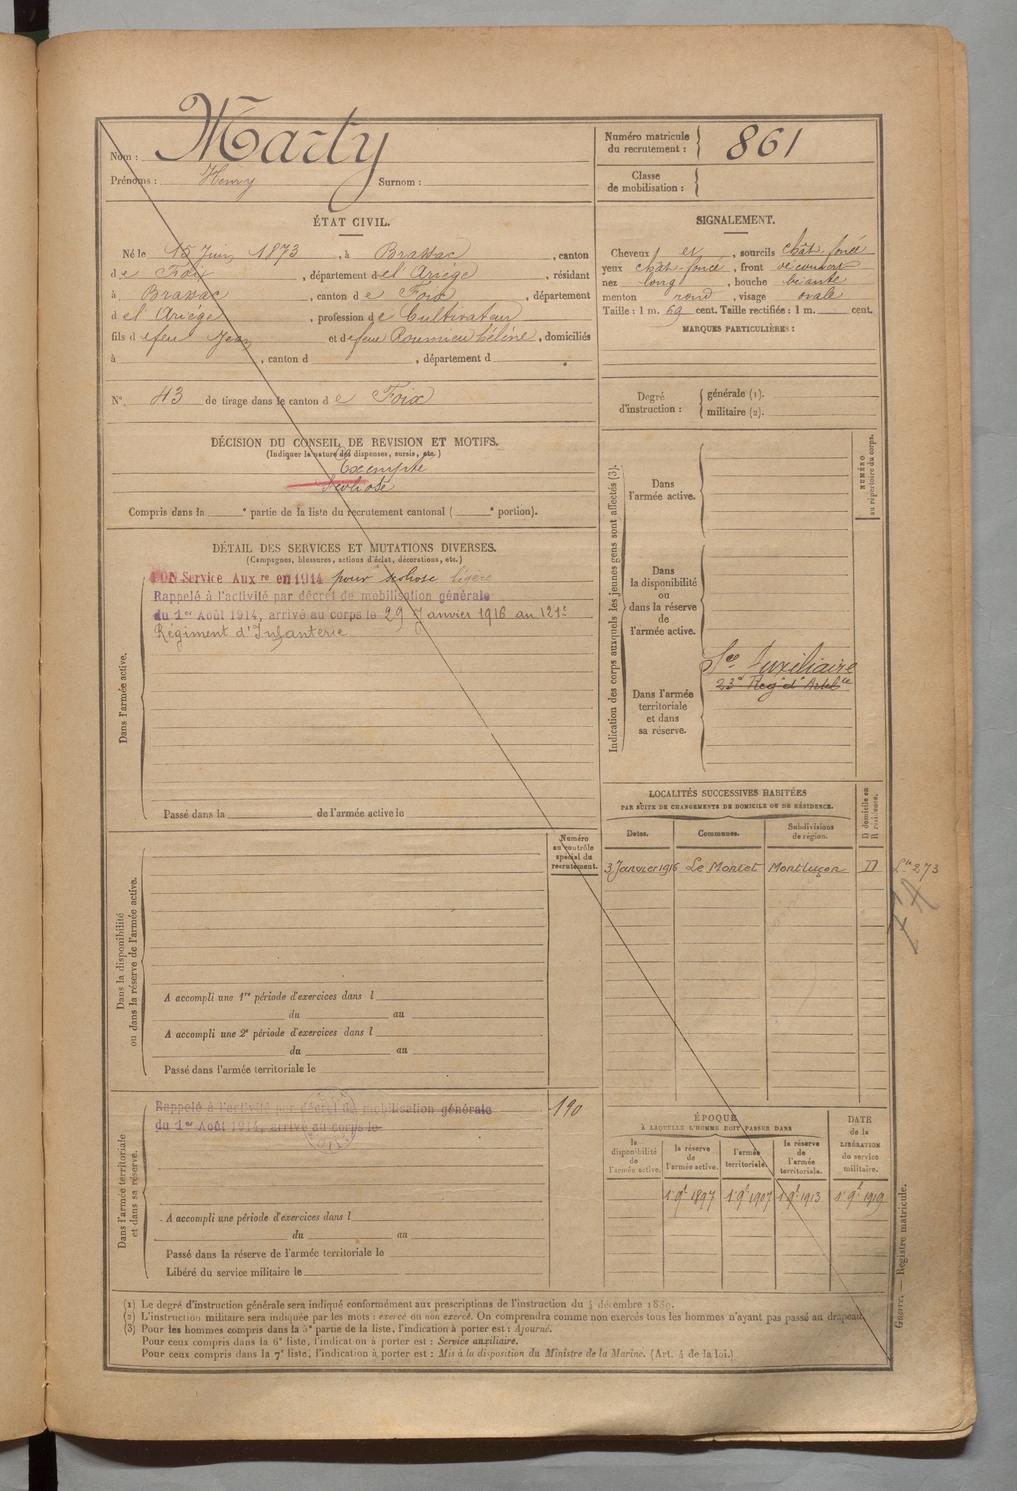 Nom : Marty
Prénoms : Henry Surnom :
Numéro matricule du recrutement : 861
Classe de mobilisation :
ÉTAT CIVIL.
Né le 15 Juin 1873, à Brassac, canton
de Foix, département de l'Ariège, résidant
à Brassac, canton de Foix, département
de l'Ariège, profession de Cultivateur
fils de feu Jean et de feue Roumieu Hélène, domiciliés
à , canton d , département d .
N° 43 de tirage dans le canton de Foix
SIGNALEMENT.
Cheveux et , sourcils chât. foncé
yeux chât. foncé, front découvert
nez long, bouche béante
menton rond, visage ovale
Taille : 1 m. 69 cent. Taille rectifiée : 1 m. cent.
MARQUES PARTICULIÈRES :
Degré d'instruction : générale (1).
militaire (2).
DÉCISION DU CONSEIL DE REVISION ET MOTIFS.
(Indiquer la nature des dispenses, sursis, etc.)
Exempté
Scoliose
Compris dans la e partie de la liste du recrutement cantonal ( e portion).
DÉTAIL DES SERVICES ET MUTATIONS DIVERSES.
(Campagnes, blessures, actions d'éclat, décorations, etc.)
BON Service Auxre en 1914 pour scoliose légère
Rappelé à l'activité par décret de mobilisation générale
du 1er Août 1914, arrivé au corps le 29 Janvier 1916 au 121e
Régiment d'Infanterie
Dans l'armée active.
Passé dans la de l'armée active le
Indication des corps auxquels les jeunes gens sont affectés (3).
NUMÉRO au répertoire du corps.
Dans l'armée active.
Dans la disponibilité ou dans la réserve de l'armée active.
Dans l'armée territoriale et dans sa réserve.
Sce Auxiliaire
23e Reg. d'Artie
LOCALITÉS SUCCESSIVES HABITÉES
PAR SUITE DE CHANGEMENTS DE DOMICILE OU DE RÉSIDENCE.
Dates. Communes. Subdivisions de région. D domicile ou R résidence.
3 Janvier 1916 Le Montet Montluçon D
Numéro au contrôle spécial du recrutement.
Dans la disponibilité ou dans la réserve de l'armée active.
A accompli une 1re période d'exercices dans l
du au
A accompli une 2e période d'exercices dans l
du au
Passé dans l'armée territoriale le
Rappelé à l'activité par décret de mobilisation générale
du 1er Août 1914, arrivé au corps le
190
Dans l'armée territoriale et dans sa réserve.
A accompli une période d'exercices dans l
du au
Passé dans la réserve de l'armée territoriale le
Libéré du service militaire le
ÉPOQUE
À LAQUELLE L'HOMME DOIT PASSER DANS
la disponibilité de l'armée active. la réserve de l'armée active. l'armée territoriale. la réserve de l'armée territoriale. DATE de la LIBÉRATION du service militaire.
1 9e 1897 1 9e 1907 1 9e 1913 1 9e 1919
(1) Le degré d'instruction générale sera indiqué conformément aux prescriptions de l'instruction du 4 décembre 1889.
(2) L'instruction militaire sera indiquée par les mots : exercé ou non exercé. On comprendra comme non exercés tous les hommes n'ayant pas passé au drapeau.
(3) Pour les hommes compris dans la 5e partie de la liste, l'indication à porter est : Ajourné.
Pour ceux compris dans la 6e liste, l'indication à porter est : Service auxiliaire.
Pour ceux compris dans la 7e liste, l'indication à porter est : Mis à la disposition du Ministre de la Marine. (Art. 4 de la loi.)
Guerre. — Registre matricule.